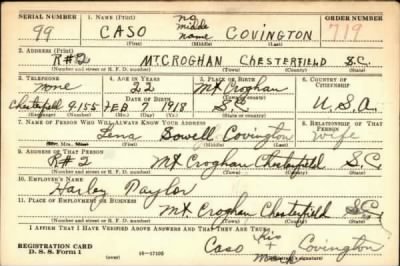 SERIAL NUMBER 1. NAME (Print) ORDER NUMBER
99 CASO no middle name COVINGTON 719
(First) (Middle) (Last)
2. ADDRESS (Print)
R#2 MT. CROGHAN CHESTERFIELD S.C.
(Number and street or R. F. D. number) (Town) (County) (State)
3. TELEPHONE 4. AGE IN YEARS 5. PLACE OF BIRTH 6. COUNTRY OF CITIZENSHIP
none 22 Mt Croghan
DATE OF BIRTH (Town or county)
Chesterfield 9155 FEB 7 1918 S.C. U.S.A.
(Exchange) (Number) (Mo.) (Day) (Yr.) (State or country)
7. NAME OF PERSON WHO WILL ALWAYS KNOW YOUR ADDRESS 8. RELATIONSHIP OF THAT PERSON
Lena Sowell Covington Wife
(Mr., Mrs., Miss) (First) (Middle) (Last)
9. ADDRESS OF THAT PERSON
R#2 Mt Croghan Chesterfield S.C.
(Number and street or R. F. D. number) (Town) (County) (State)
10. EMPLOYER'S NAME
Harley Taylor
11. PLACE OF EMPLOYMENT OR BUSINESS
Mt. Croghan Chesterfield S.C.
(Number and street or R. F. D. number) (Town) (County) (State)
I AFFIRM THAT I HAVE VERIFIED ABOVE ANSWERS AND THAT THEY ARE TRUE.
REGISTRATION CARD Caso his + mark Covington
D. S. S. Form 1 16—17105